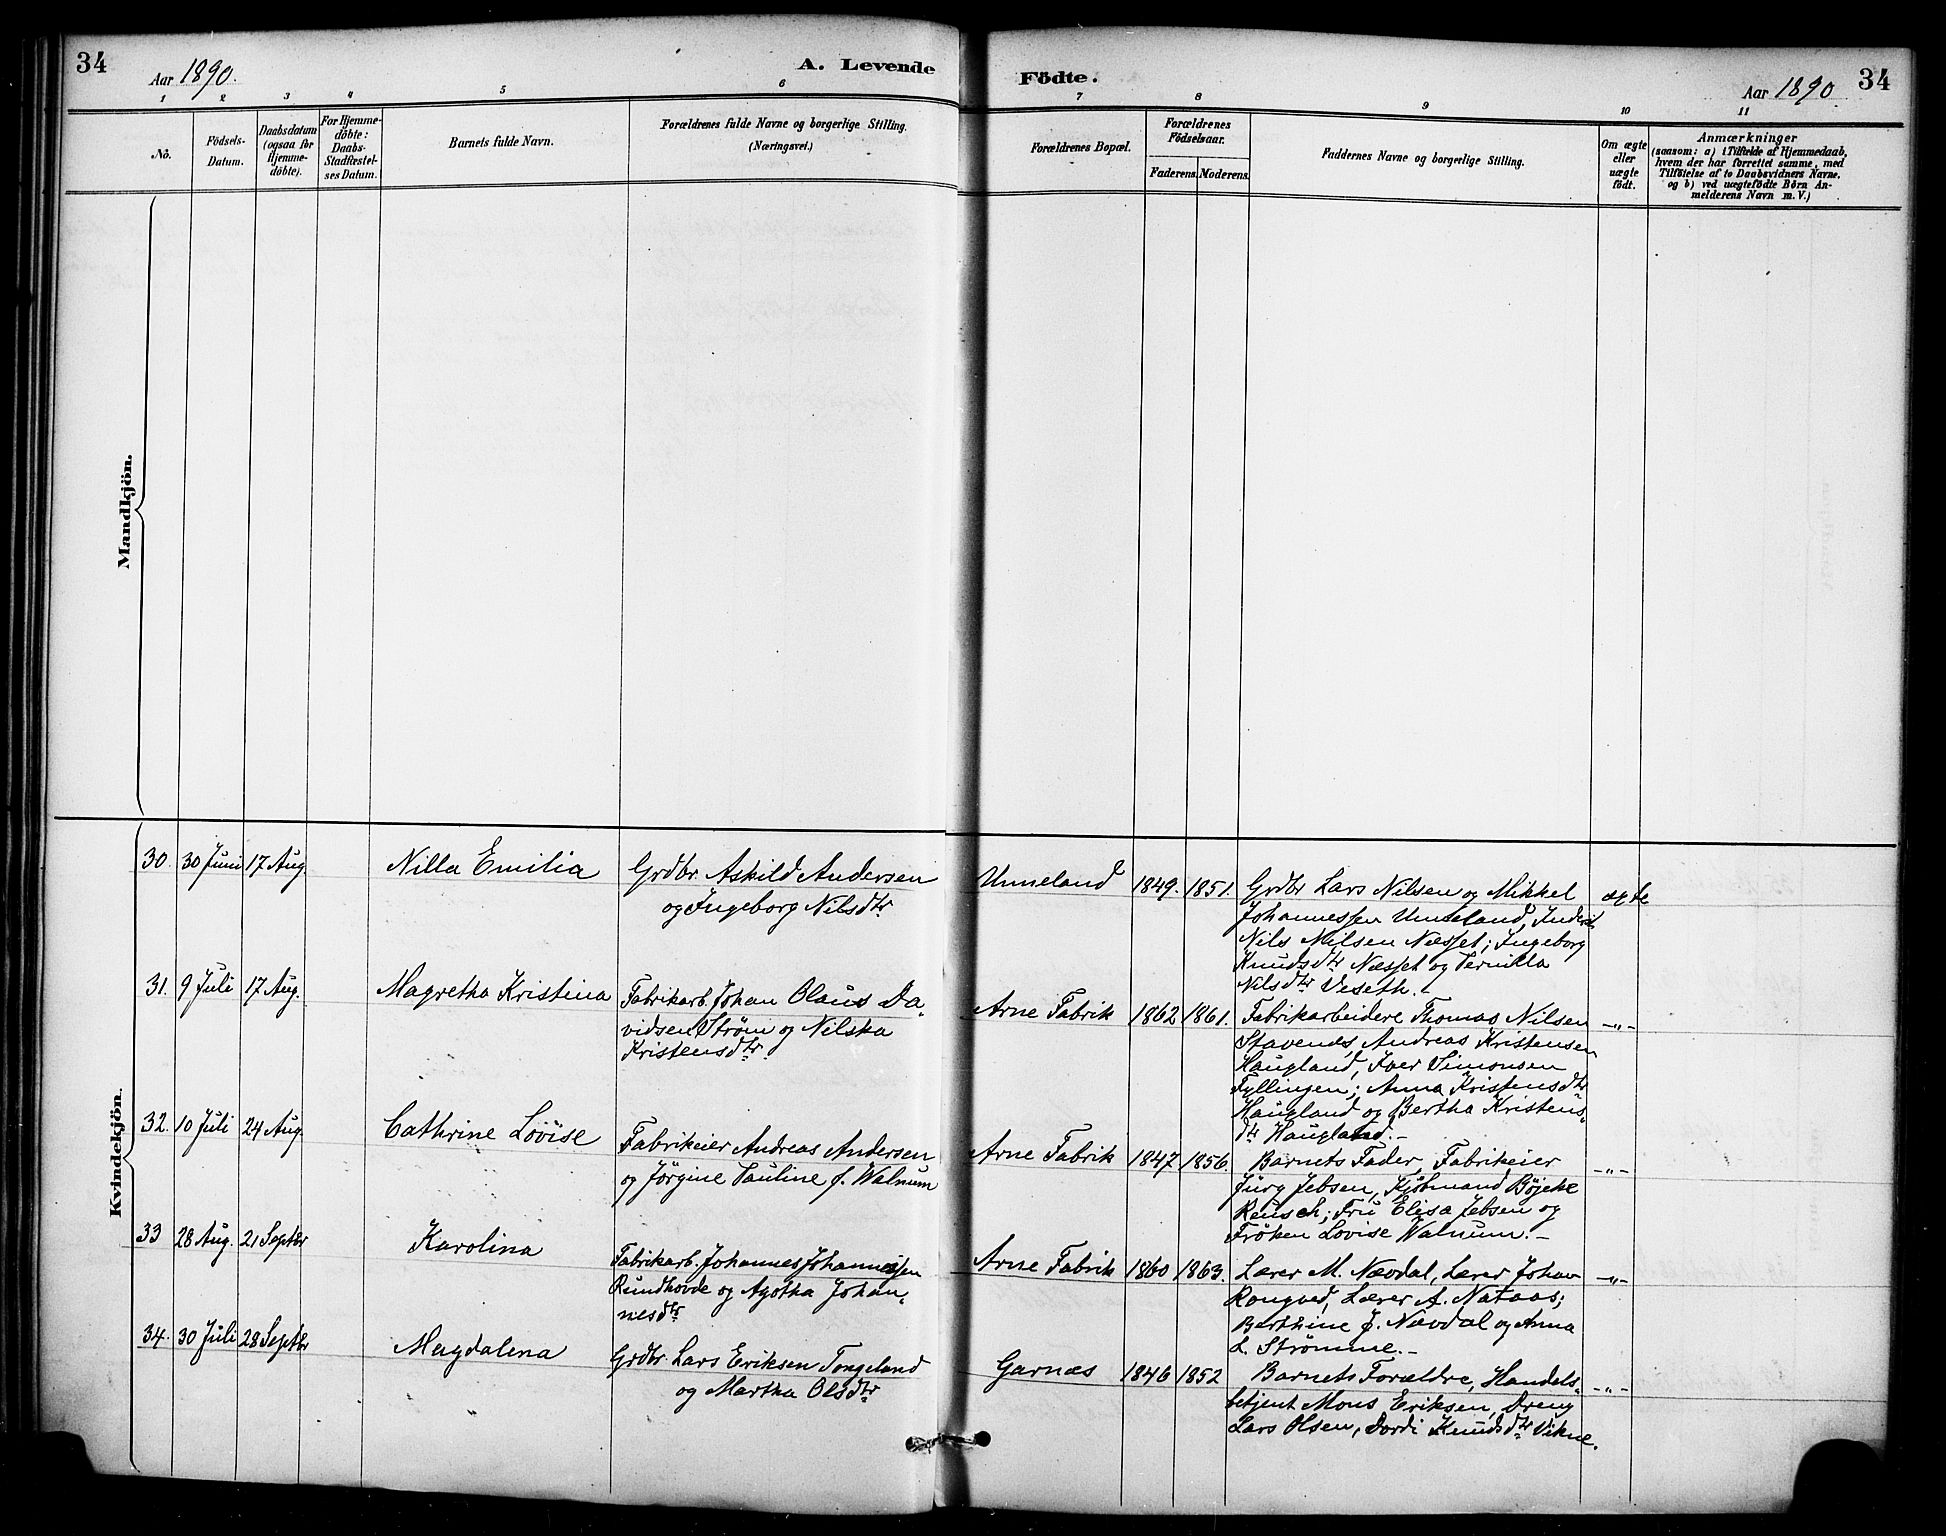 34
Aar 1890.
A. Levende
Födte.
Aar 1890.
34
1 2 3 4 5 6 7 8 9 10 11
No.
Födsels-
Datum.
Daabsdatum
(ogsaa for
Hjemme-
döbte).
For Hjemme-
döbte:
Daabs-
Stadfæstel-
ses Datum.
Barnets fulde Navn.
Forældrenes fulde Navne og borgerlige Stilling.
(Næringsvei.)
Forældrenes Bopæl.
Forældrenes
Födselsaar.
Faderens. Moderens.
Faddernes Navne og borgerlige Stilling.
Om ægte
eller
uægte
födt.
Anmærkninger
(saasom: a) i Tilfælde af Hjemmedaab,
hvem der har forrettet samme, med
Tilföielse af to Daabsvidners Navne,
og b) ved uægtefödte Börn An-
melderens Navn m. V.)
Mandkjön.
Kvindekjön.
30. 30 Juni 17 Aug. Nilla Emilia
Grdbr. Askild Andersen
og Ingeborg Nilsdtr
Unneland 1849. 1851.
Grdbr Lars Nilsen og Mikkel
Johannessen Unneland,
Nils Nilsen Næsset; Ingeborg
Knudsdtr Næsset og Pernilla
Nilsdtr Veseth.
ægte
31. 9 Juli 17 Aug. Magretha Kristina
Fabrikarb. Johan Olaus Da-
vidsen Strøm og Nilska
Kristensdtr
Arne Fabrik 1862 1861.
Fabrikarbeidere Thomas Nilsen
Stavenes, Andreas Kristensen
Haugland, Iver Simonsen
Fyllingen; Anna Kristensdtr
Haugland og Bertha Kristens-
dtr Haugland.-
-"-
32. 10 Juli 24 Aug. Cathrine Lovise
Fabrikeier Andreas Andersen
og Jörgine Pauline f. Walnum
Arne Fabrik 1847 1856.
Barnets Fader, Fabrikeier
Jürg Jebsen, Kjöbmand Böjeke
Reusch; Fru Elisa Jebsen og
Fröken Lovise Walnum.-
-"-
33 28 Aug. 21 Septbr Karolina
Fabrikarb. Johannes Johannessen
Rundhovde og Agotha Johan-
nesdtr
Arne Fabrik 1860 1863.
Lærer M. Nævdal, Lærer Johan
Rongved, Lærer A. Nataas;
Berthine J. Nævdal og Anna
L. Strömme.-
-"-
34. 30 Juli 28 Septbr Magdalena
Grdbr. Lars Eriksen Tongeland
og Martha Olsdtr
Garnæs 1846 1852
Barnets Forældre, Handels-
betjent Mons Eriksen, Dreng
Lars Olsen, Dordi Knudsdtr Vikne.
-"-